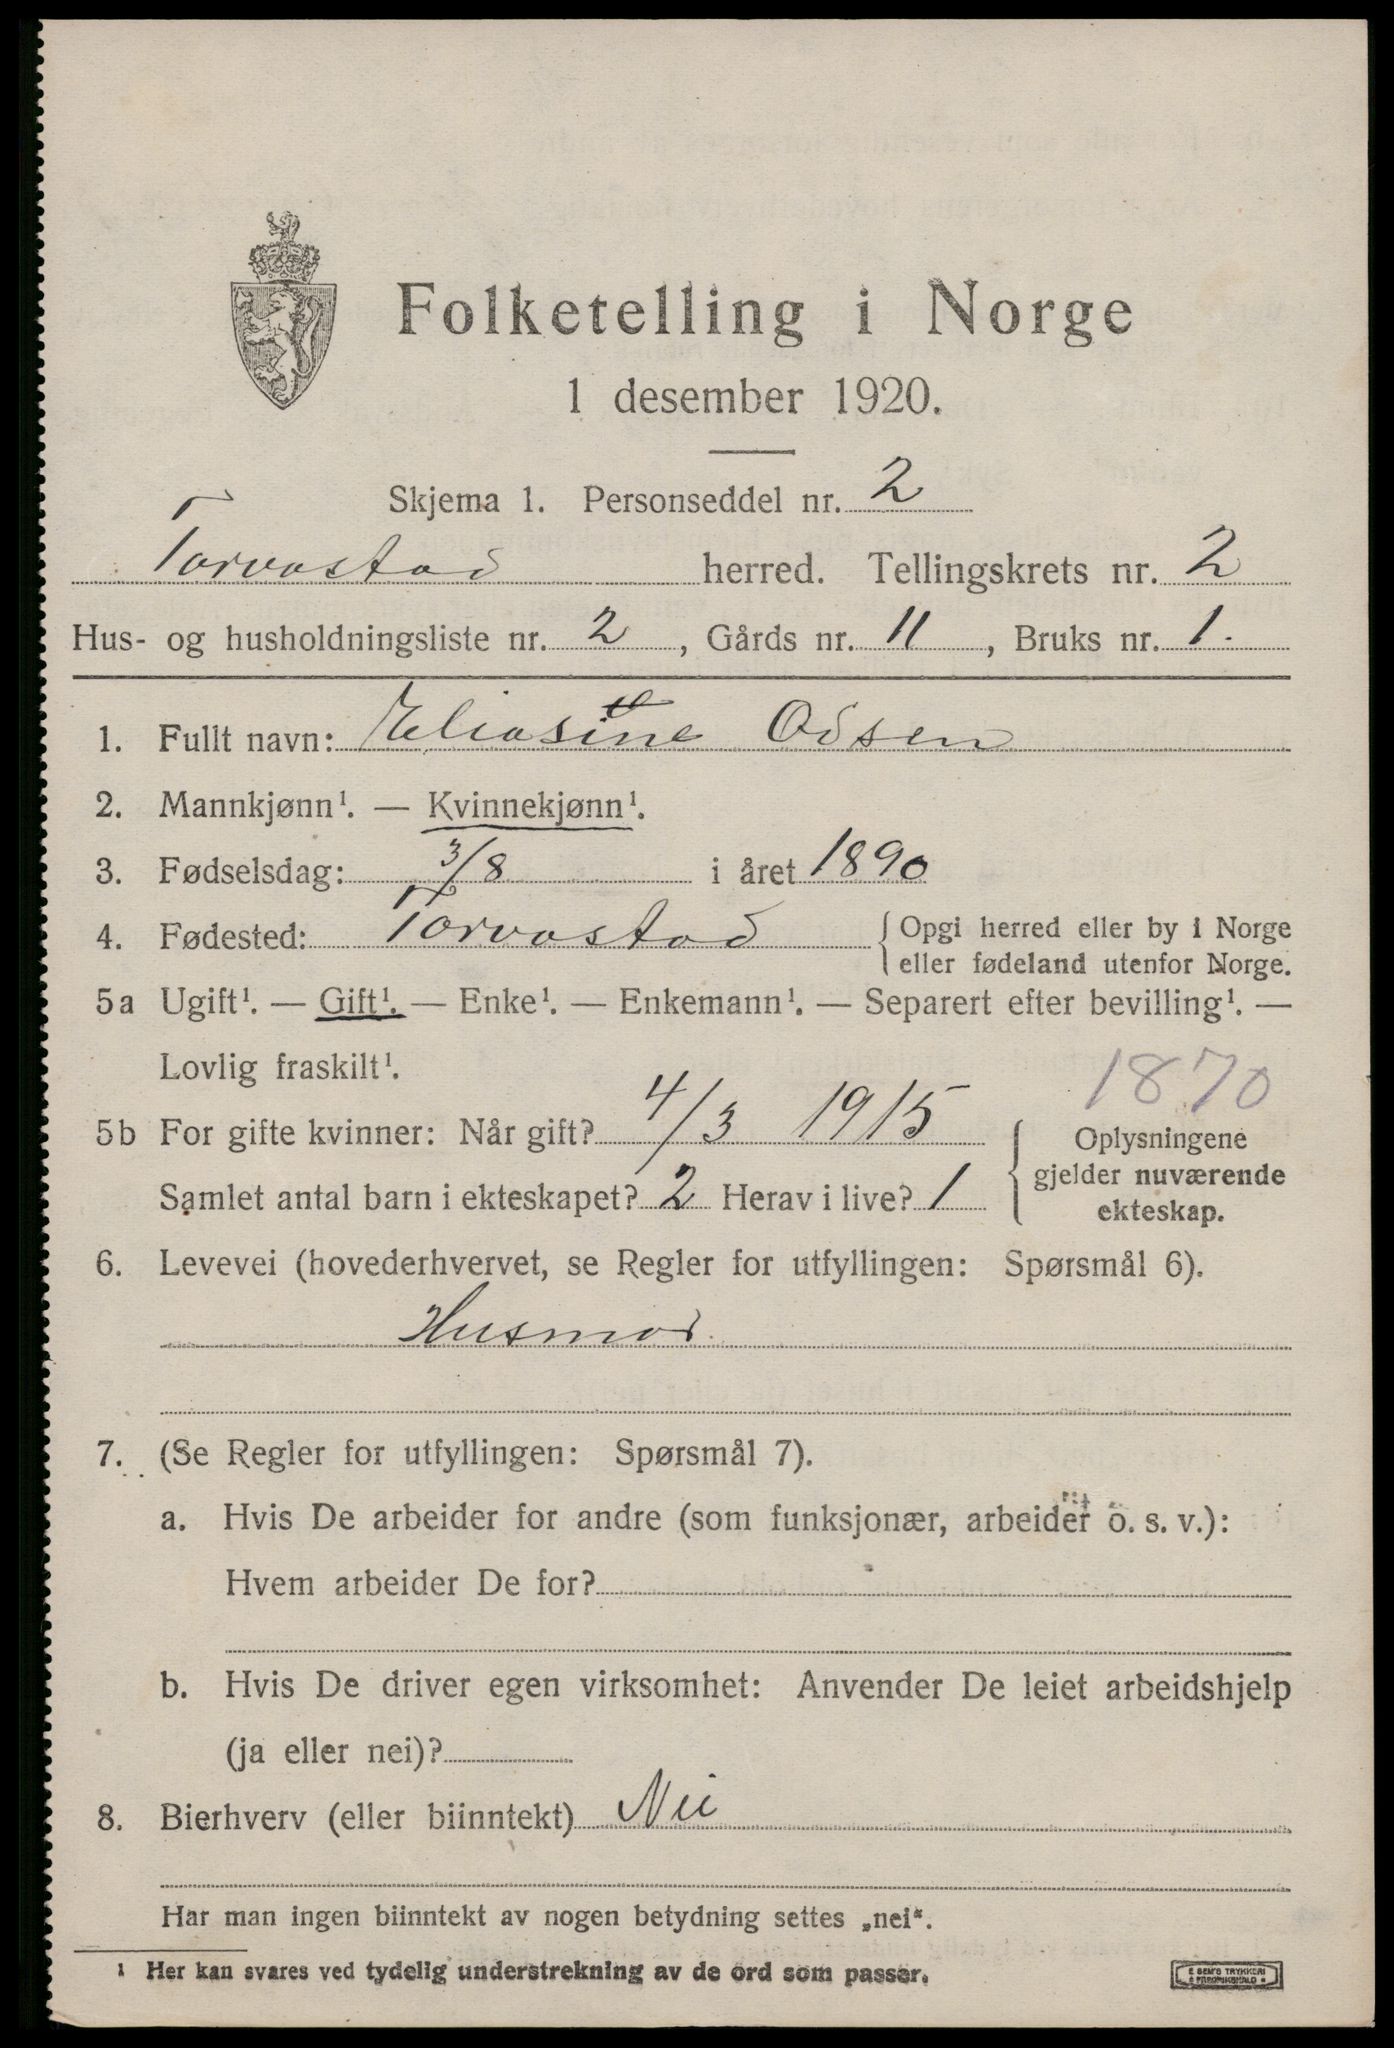 Folketelling i Norge
1 desember 1920.
Skjema 1. Personseddel nr. 2
Torvastad herred. Tellingskrets nr. 2
Hus- og husholdningsliste nr. 2, Gårds nr. 11, Bruks nr. 1.
1. Fullt navn: Eliasine Odsen
2. Mannkjønn¹. — Kvinnekjønn¹.
3. Fødselsdag: 3/8 i året 1890
4. Fødested: Torvastad { Opgi herred eller by i Norge
eller fødeland utenfor Norge.
5a Ugift¹. — Gift¹. — Enke¹. — Enkemann¹. — Separert efter bevilling¹. —
Lovlig fraskilt¹.
1870
5b For gifte kvinner: Når gift? 4/3 1915
Samlet antal barn i ekteskapet? 2 Herav i live? 1
{ Oplysningene
gjelder nuværende
ekteskap.
6. Levevei (hovederhvervet, se Regler for utfyllingen: Spørsmål 6).
Husmor
7. (Se Regler for utfyllingen: Spørsmål 7).
a. Hvis De arbeider for andre (som funksjonær, arbeider o. s. v.):
Hvem arbeider De for?
b. Hvis De driver egen virksomhet: Anvender De leiet arbeidshjelp
(ja eller nei)?
8. Bierhverv (eller biinntekt) Nei
Har man ingen biinntekt av nogen betydning settes „nei“.
¹ Her kan svares ved tydelig understrekning av de ord som passer.
E SEM'S TRYKKERI
FREDRIKSHALD